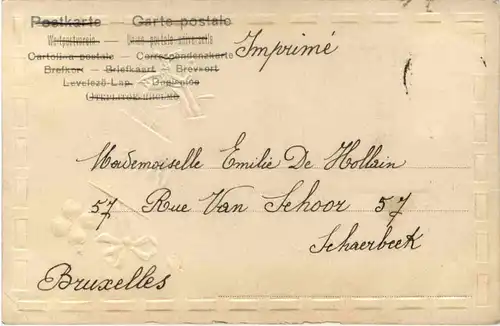 Postkarte — Carte postale
Weltpostverein —
Cartolina postale — Correspondenzkarte
Brefkort — Briefkaart — Brevkort
Levelező-Lap —
Imprimé
Mademoiselle Emilie De Hollain
57 Rue Van Schoor 57
Schaerbeek
Bruxelles